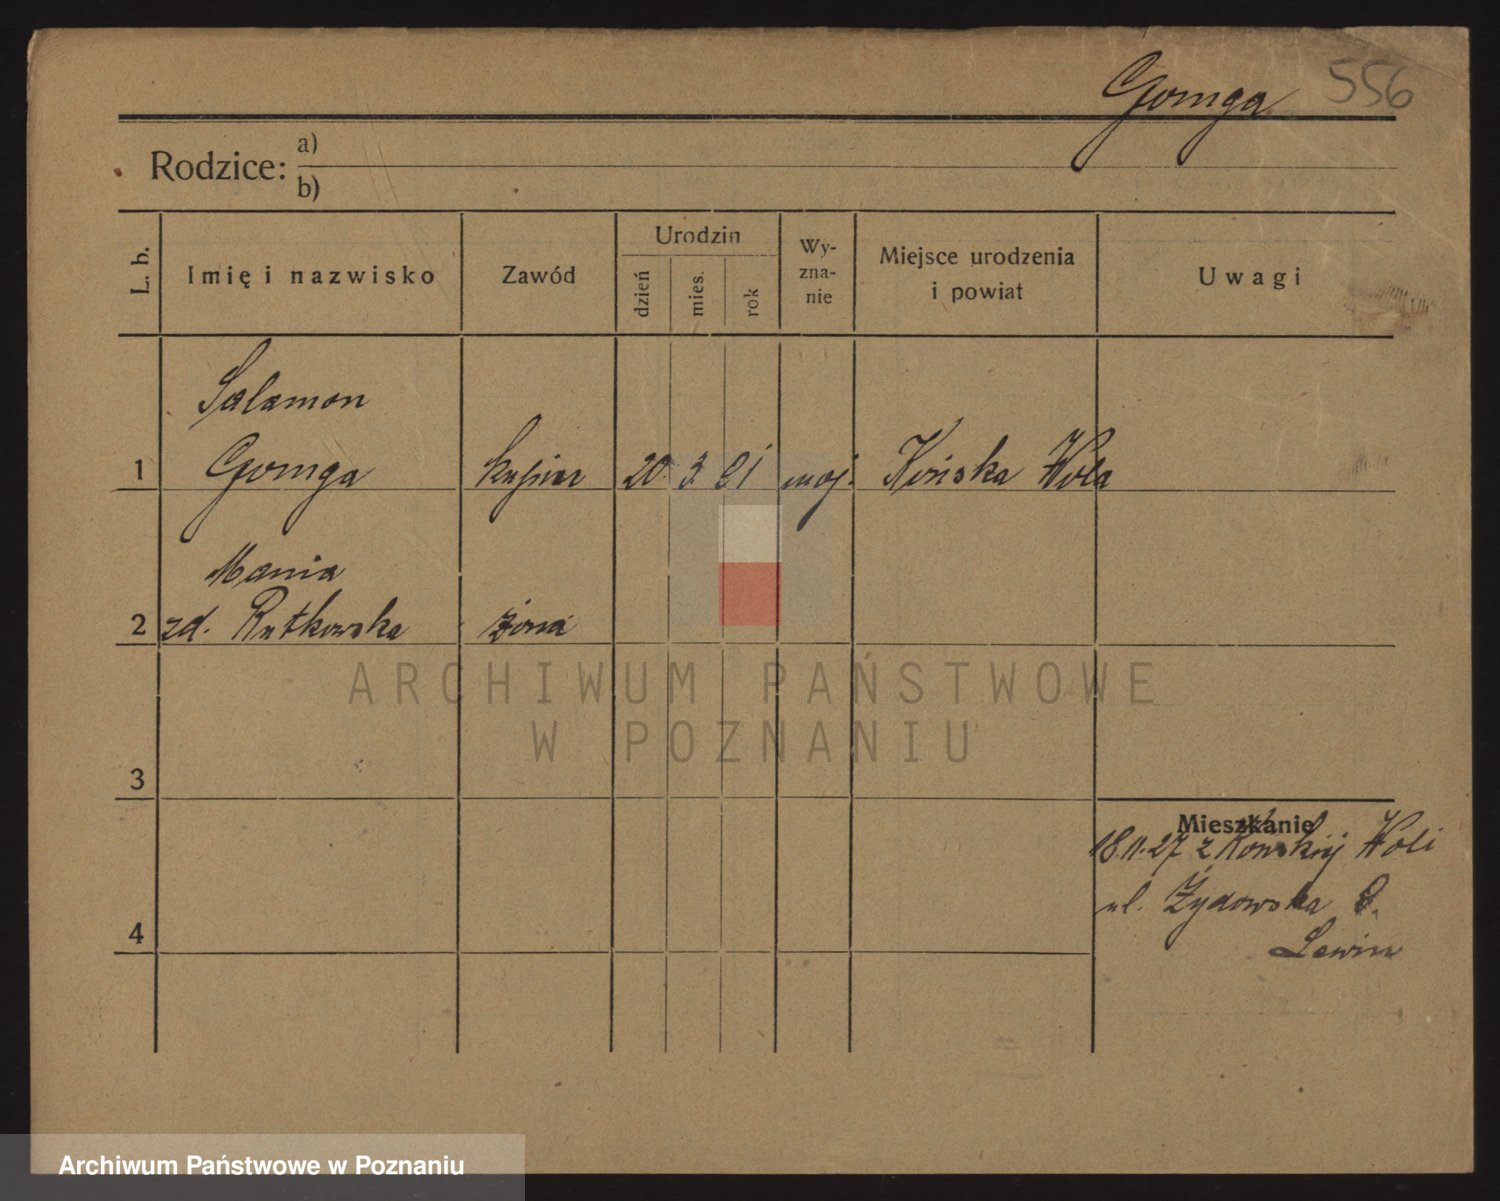 Gomga 556
Rodzice: a)
b)
L. b.
Imię i nazwisko
Zawód
Urodzin
dzień
mies.
rok
Wy-
zna-
nie
Miejsce urodzenia
i powiat
Uwagi
Salamon
1 Gomga kupiec 20. 3. 81 moj. Końska Wola
Mania
2 zd. Rutkowska żona
ARCHIWUM PAŃSTWOWE
W POZNANIU
3
Mieszkanie
18.11.27 z Końskiej Woli
ul. Żydowska 8.
4
Lewin
Archiwum Państwowe w Poznaniu